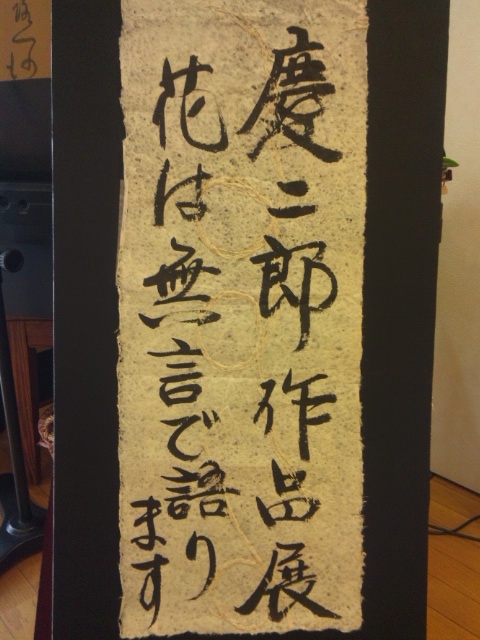 慶二郎作品展
花は無言で語り
ます